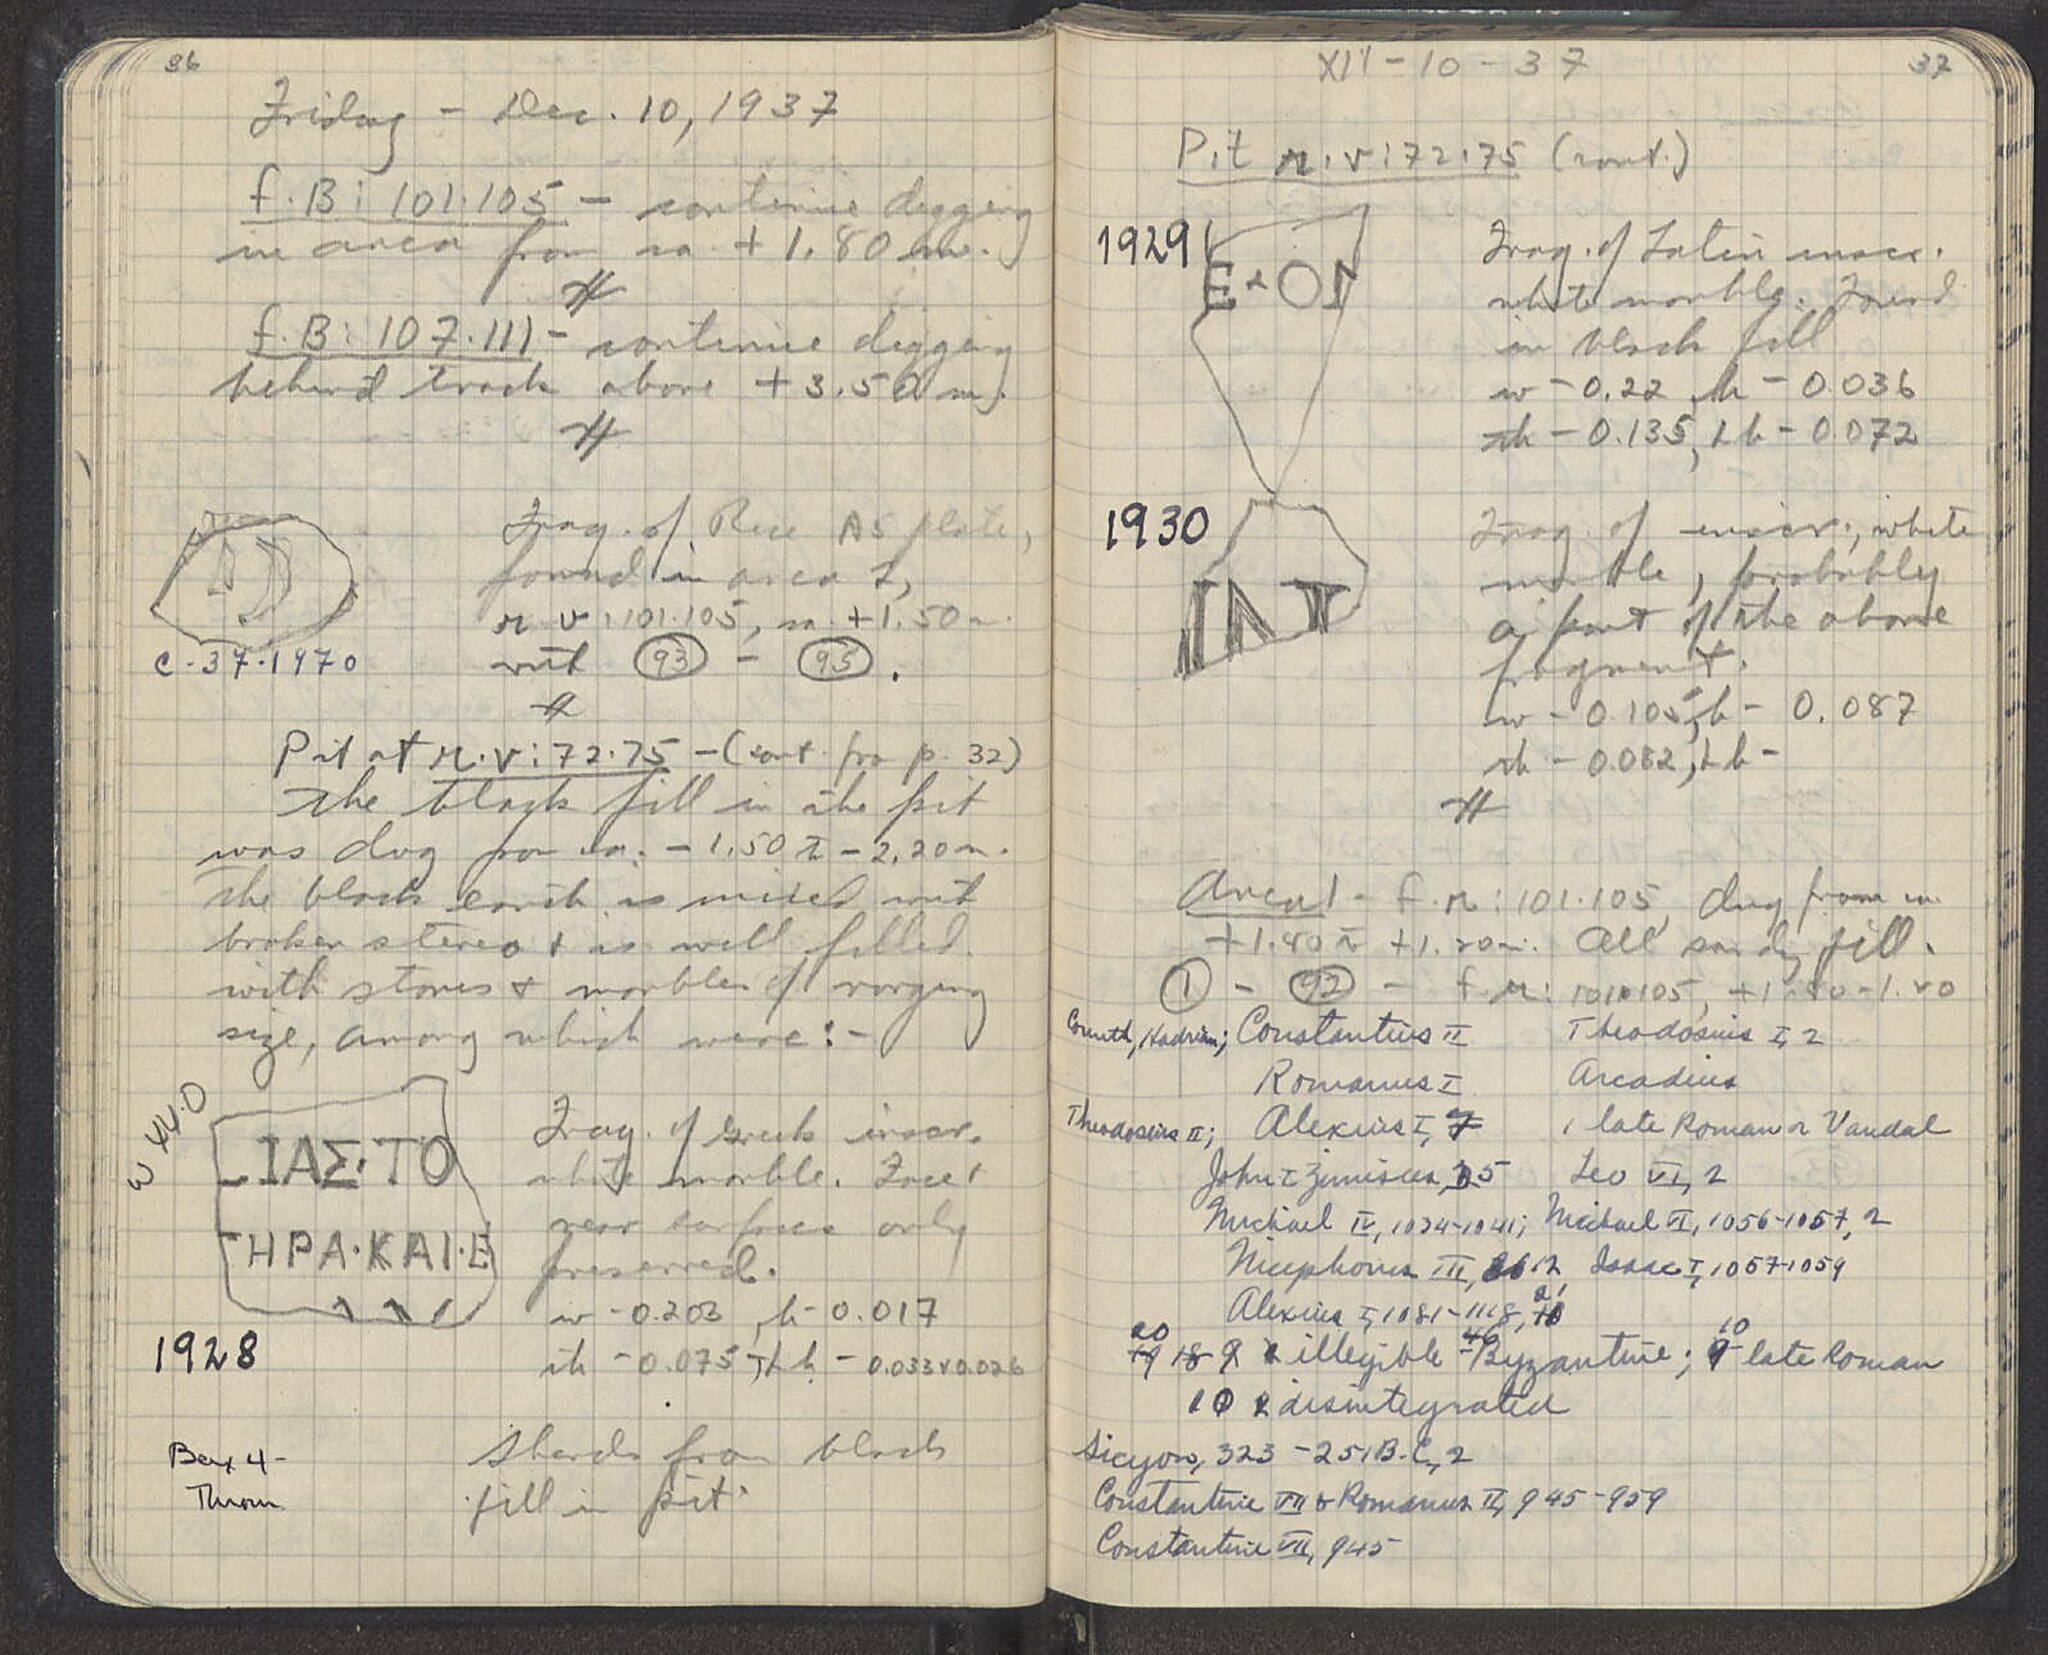 36
Friday - Dec. 10, 1937
f.B: 101.105 - continue digging
in area from ca. + 1.80 m.
f.B: 107.111 - continue digging
behind track above + 3.50 m.
Frag. of Rice A5 plate,
found in area I,
π.v: 101.105, ca. +1.50 m.
with 93 - 95.
C-37-1970
Pit at π.v: 72.75 - (cont. fro p. 32)
The black fill in the pit
was dug from ca. - 1.50 to - 2.20 m.
The black earth is mixed with
broken stereo & is well filled
with stones & marbles of varying
size, among which were: -
W 44.0
ΙΑΣ·ΤΟ
ΗΡΑ·ΚΑΙ·Ε
Frag. of Greek inscr.
white marble. Face &
rear surfaces only
preserved.
w - 0.203, h - 0.017
th - 0.075, Lh - 0.033 & 0.026
1928
Box 4 -
Thrown
Sherds from black
fill in pit.
XII - 10 - 37
37
Pit π.v: 72.75 (cont.)
1929
Frag. of Latin inscr.
white marble. Found
in black fill
w - 0.22, h - 0.036
th - 0.135, Lh - 0.072
1930
INT
Frag. of inscr., white
marble, probably
a part of the above
fragment.
w - 0.105, h - 0.087
th - 0.082, Lh -
Area I - f.π: 101.105, dug from ca.
+1.80 to +1.20 m. All sandy fill.
1 - 92 - f.π: 101.105, +1.80 - 1.20
Corinth, Hadrian; Constantius II Theodosius I, 2
Romanus I Arcadius
Theodosius II; Alexius I, 1 late Roman or Vandal
John Zimisces, 5 Leo VI, 2
Michael IV, 1034-1041; Michael VI, 1056-1057, 2
Nicephorus III, 12 Isaac I, 1057-1059
Alexius I, 1081-1118, 21
20 illegible Byzantine; 10 late Roman
10 disintegrated
Sicyon, 323 - 251 B.C., 2
Constantine VII & Romanus II, 945-959
Constantine VII, 945